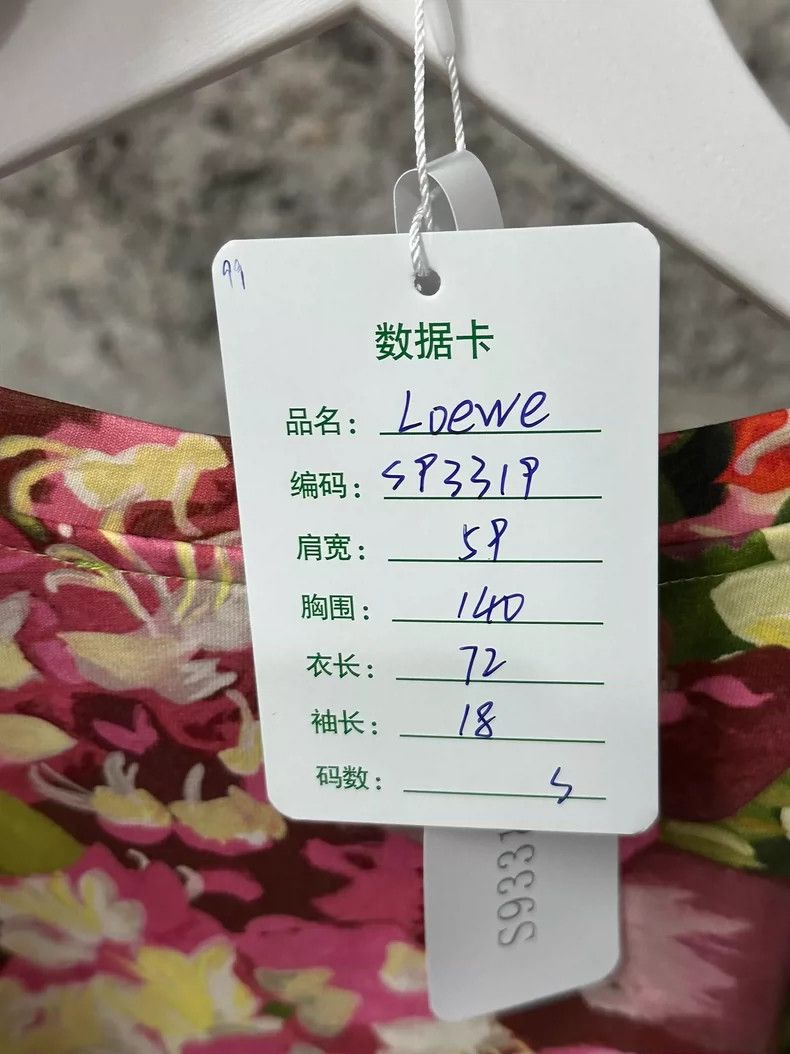 99
数据卡
品名: Loewe
编码: S93319
肩宽: 59
胸围: 140
衣长: 72
袖长: 18
码数: S
S9331